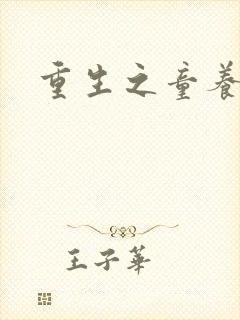 重生之童養
王子華